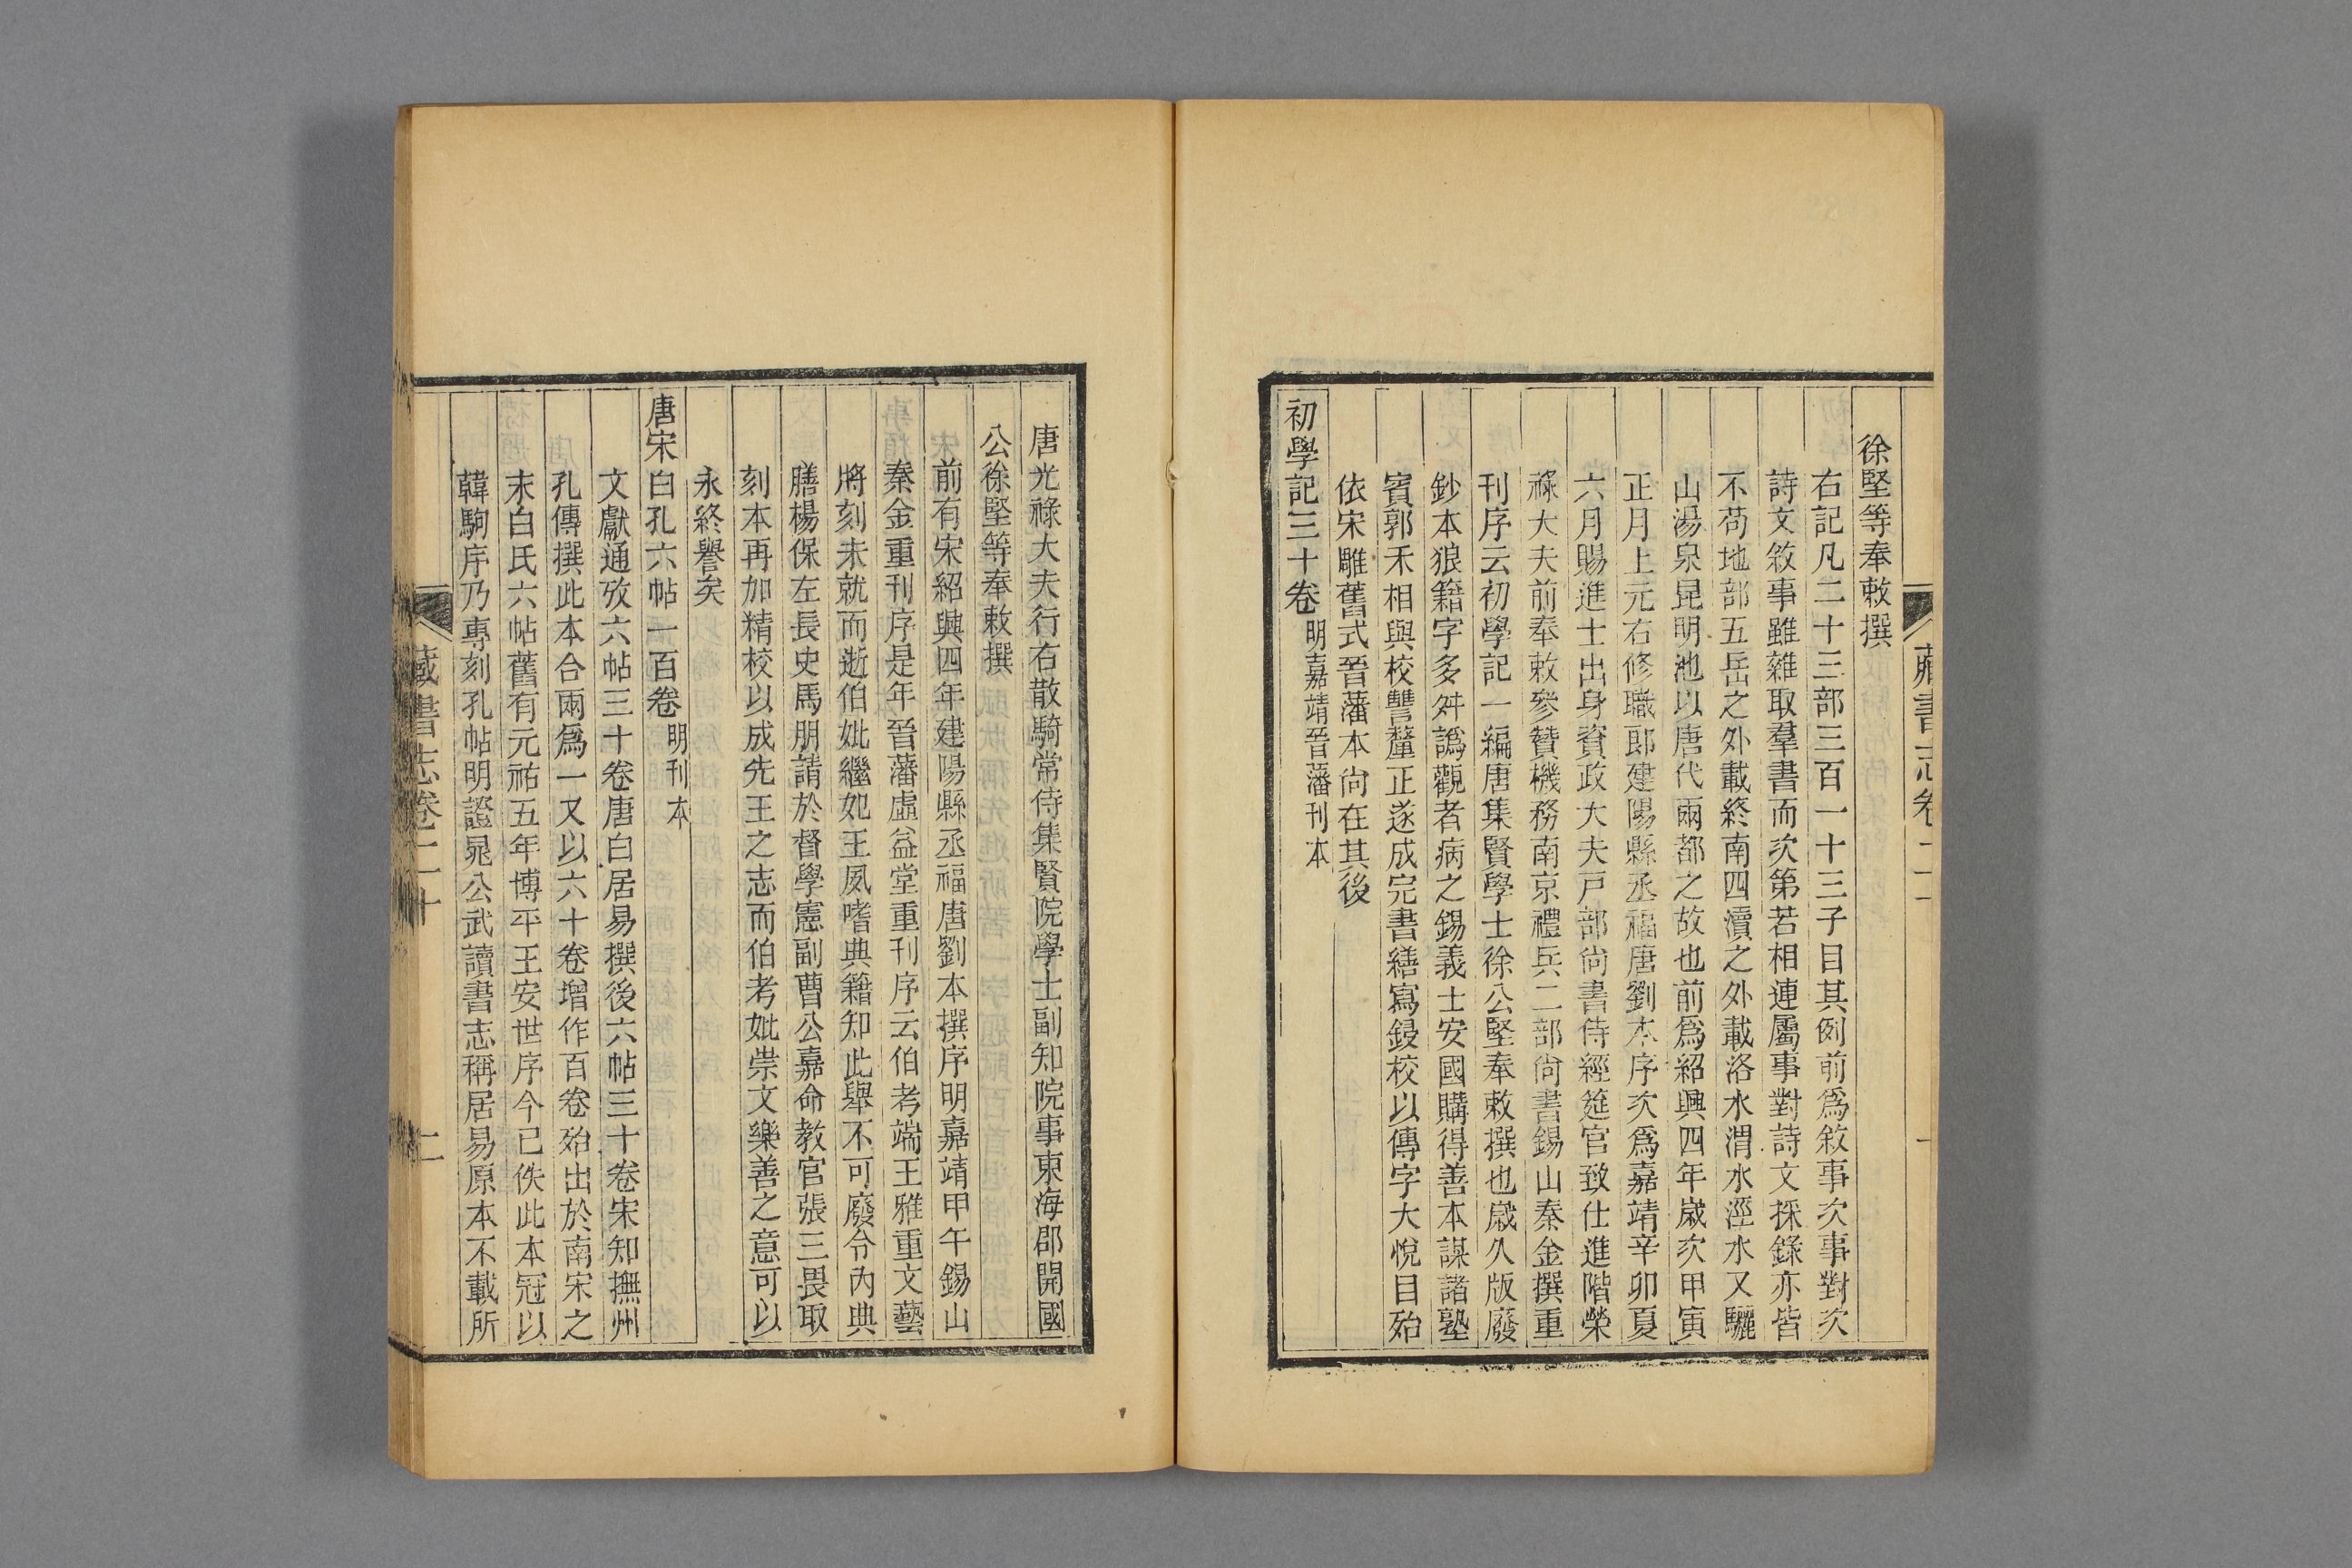 藏書志卷二十
徐堅等奉敕撰
右記凡二十三部三百一十三子目其例前爲敘事次事對次
詩文敘事雖雜取羣書而次第若相連屬事對詩文採錄亦皆
不苟地部五岳之外載終南四瀆之外載洛水渭水涇水又驪
山湯泉昆明池以唐代兩都之故也前爲紹興四年歲次甲寅
正月上元右修職郎建陽縣丞福唐劉本序次爲嘉靖辛卯夏
六月賜進士出身資政大夫戸部尙書侍經筵官致仕進階榮
祿大夫前奉敕參贊機務南京禮兵二部尙書錫山秦金撰重
刊序云初學記一編唐集賢學士徐公堅奉敕撰也歲久版廢
鈔本狼籍字多舛譌觀者病之錫義士安國購得善本謀諸塾
賓郭禾相與校讐釐正遂成完書繕寫鋟校以傳字大悅目殆
依宋雕舊式晉藩本尙在其後
初學記三十卷 明嘉靖晉藩刊本
唐光祿大夫行右散騎常侍集賢院學士副知院事東海郡開國
公徐堅等奉敕撰
前有宋紹興四年建陽縣丞福唐劉本撰序明嘉靖甲午錫山
秦金重刊序是年晉藩虛益堂重刊序云伯考端王雅重文藝
將刻未就而逝伯妣繼妃王夙嗜典籍知此舉不可廢令內典
膳楊保左長史馬朋請於督學憲副曹公嘉命教官張三畏取
刻本再加精校以成先王之志而伯考妣崇文樂善之意可以
永終譽矣
唐宋白孔六帖一百卷 明刊本
文獻通攷六帖三十卷唐白居易撰後六帖三十卷宋知撫州
孔傳撰此本合兩爲一又以六十卷增作百卷殆出於南宋之
末白氏六帖舊有元祐五年博平王安世序今已佚此本冠以
韓駒序乃專刻孔帖明證晁公武讀書志稱居易原本不載所
藏書志卷二十
二